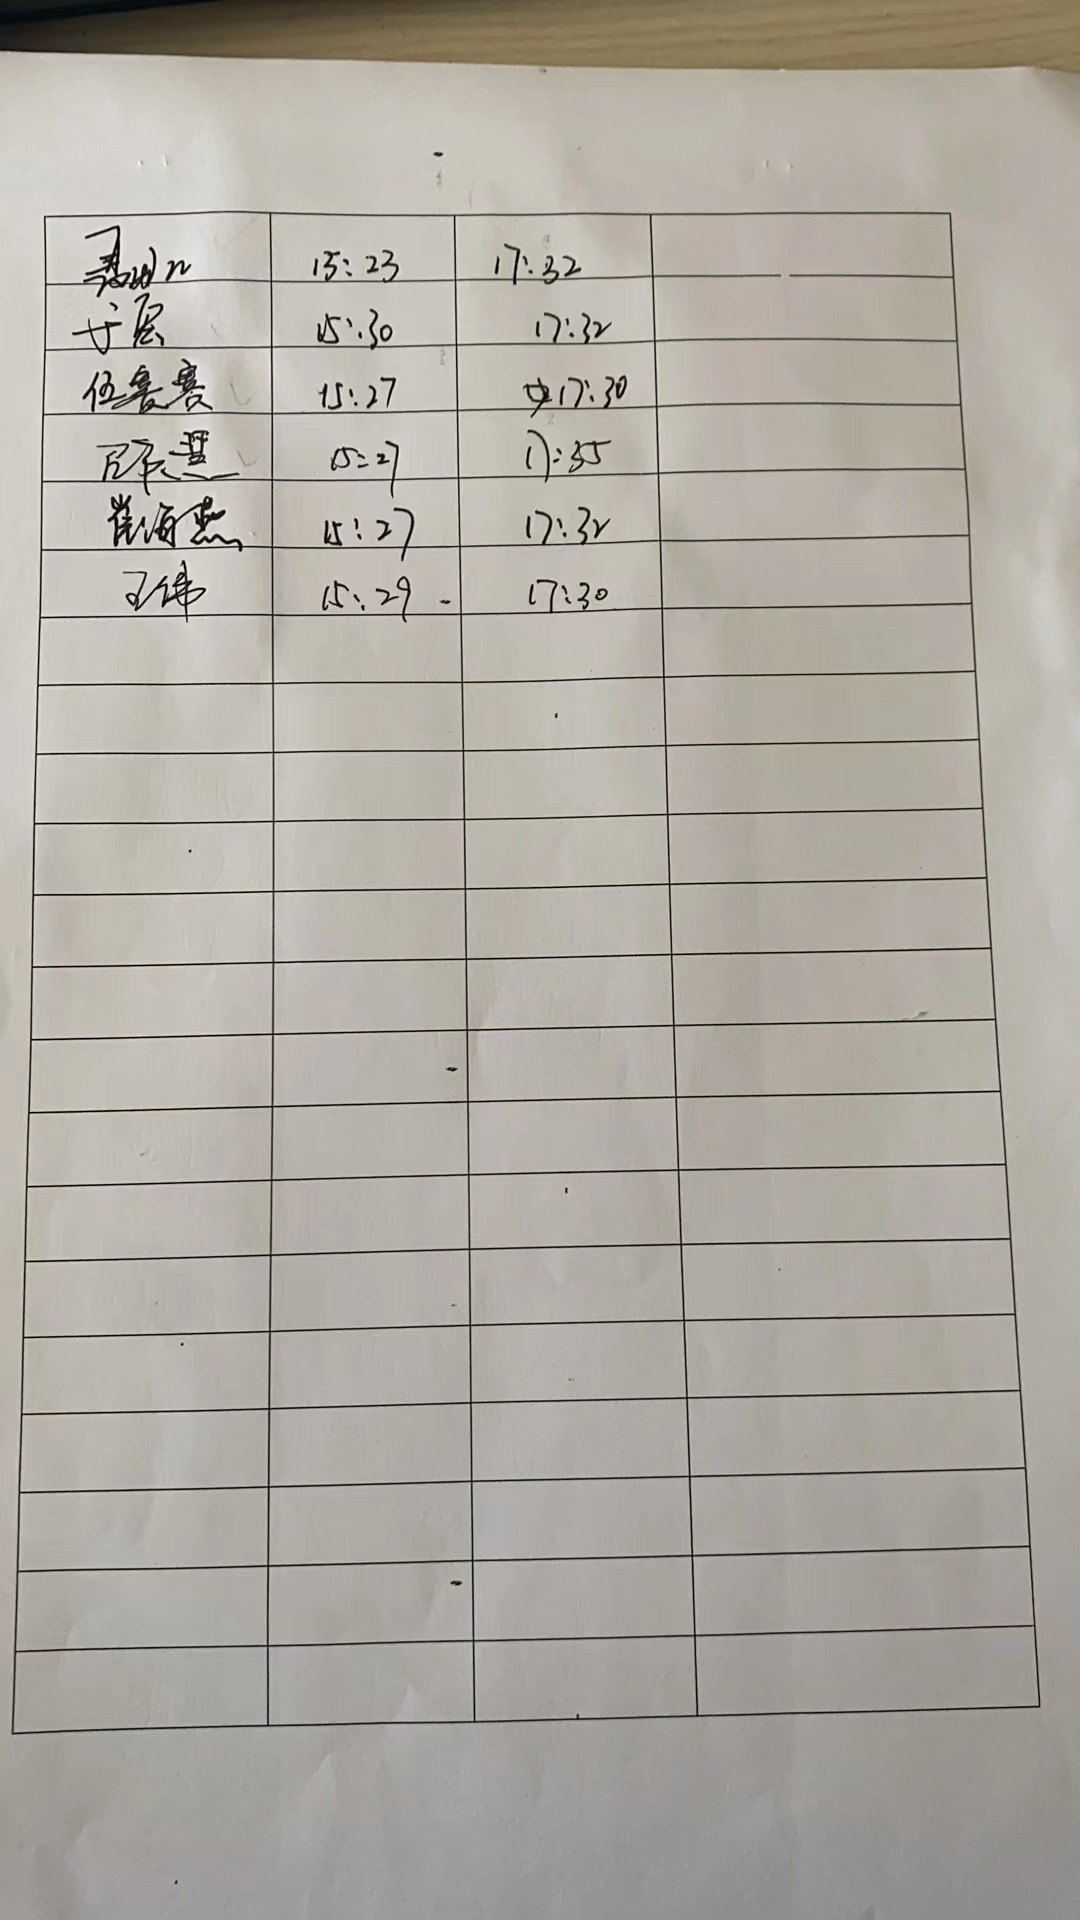 15:23 17:32
15:30 17:32
伍 赛 15:27 17:30
15:27 17:35
崔海燕 15:27 17:32
王伟 15:29 17:30